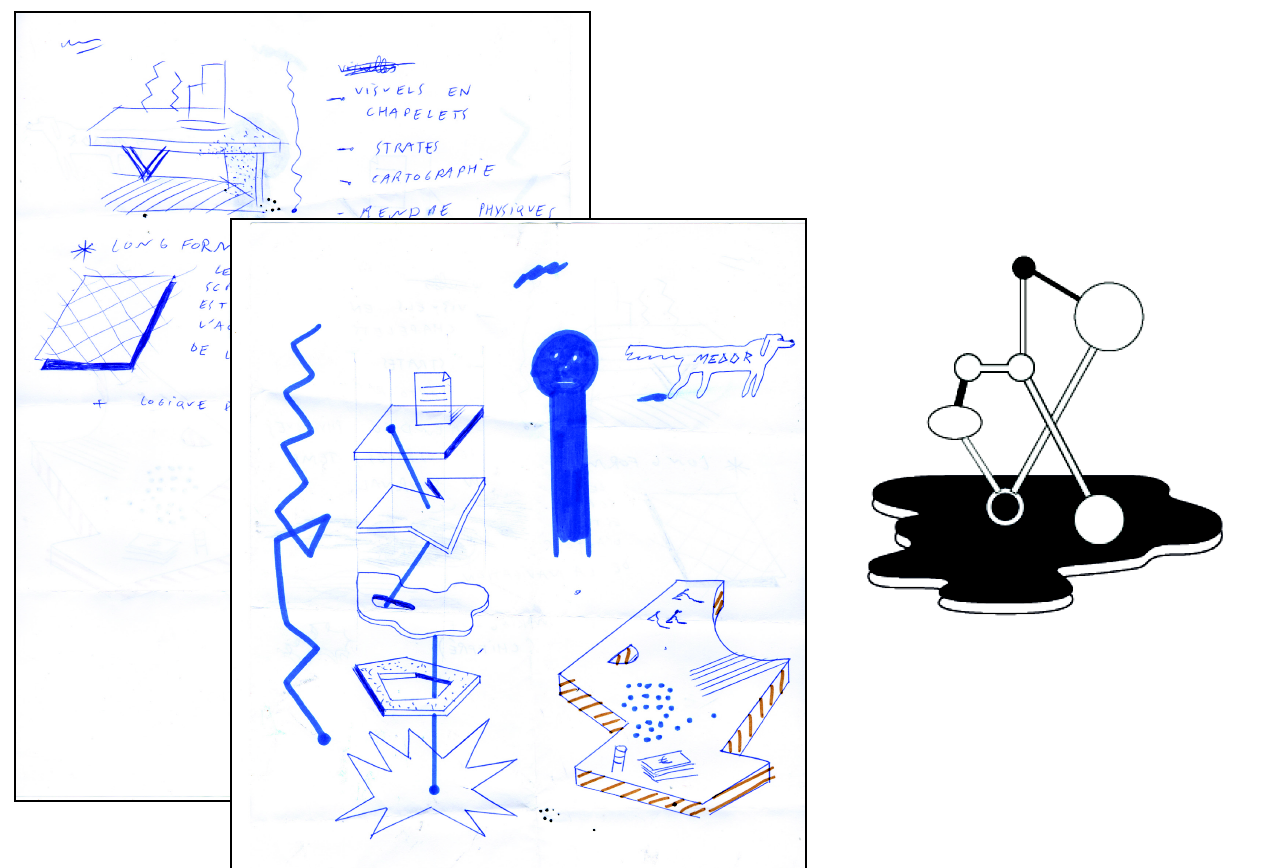 VISUELS EN
CHAPELETS
STRATES
CARTOGRAPHIE
- RENDRE PHYSIQUES
* LONG FORM
LE
EST
DE L
+ LOGIQUE
MEDOR
€